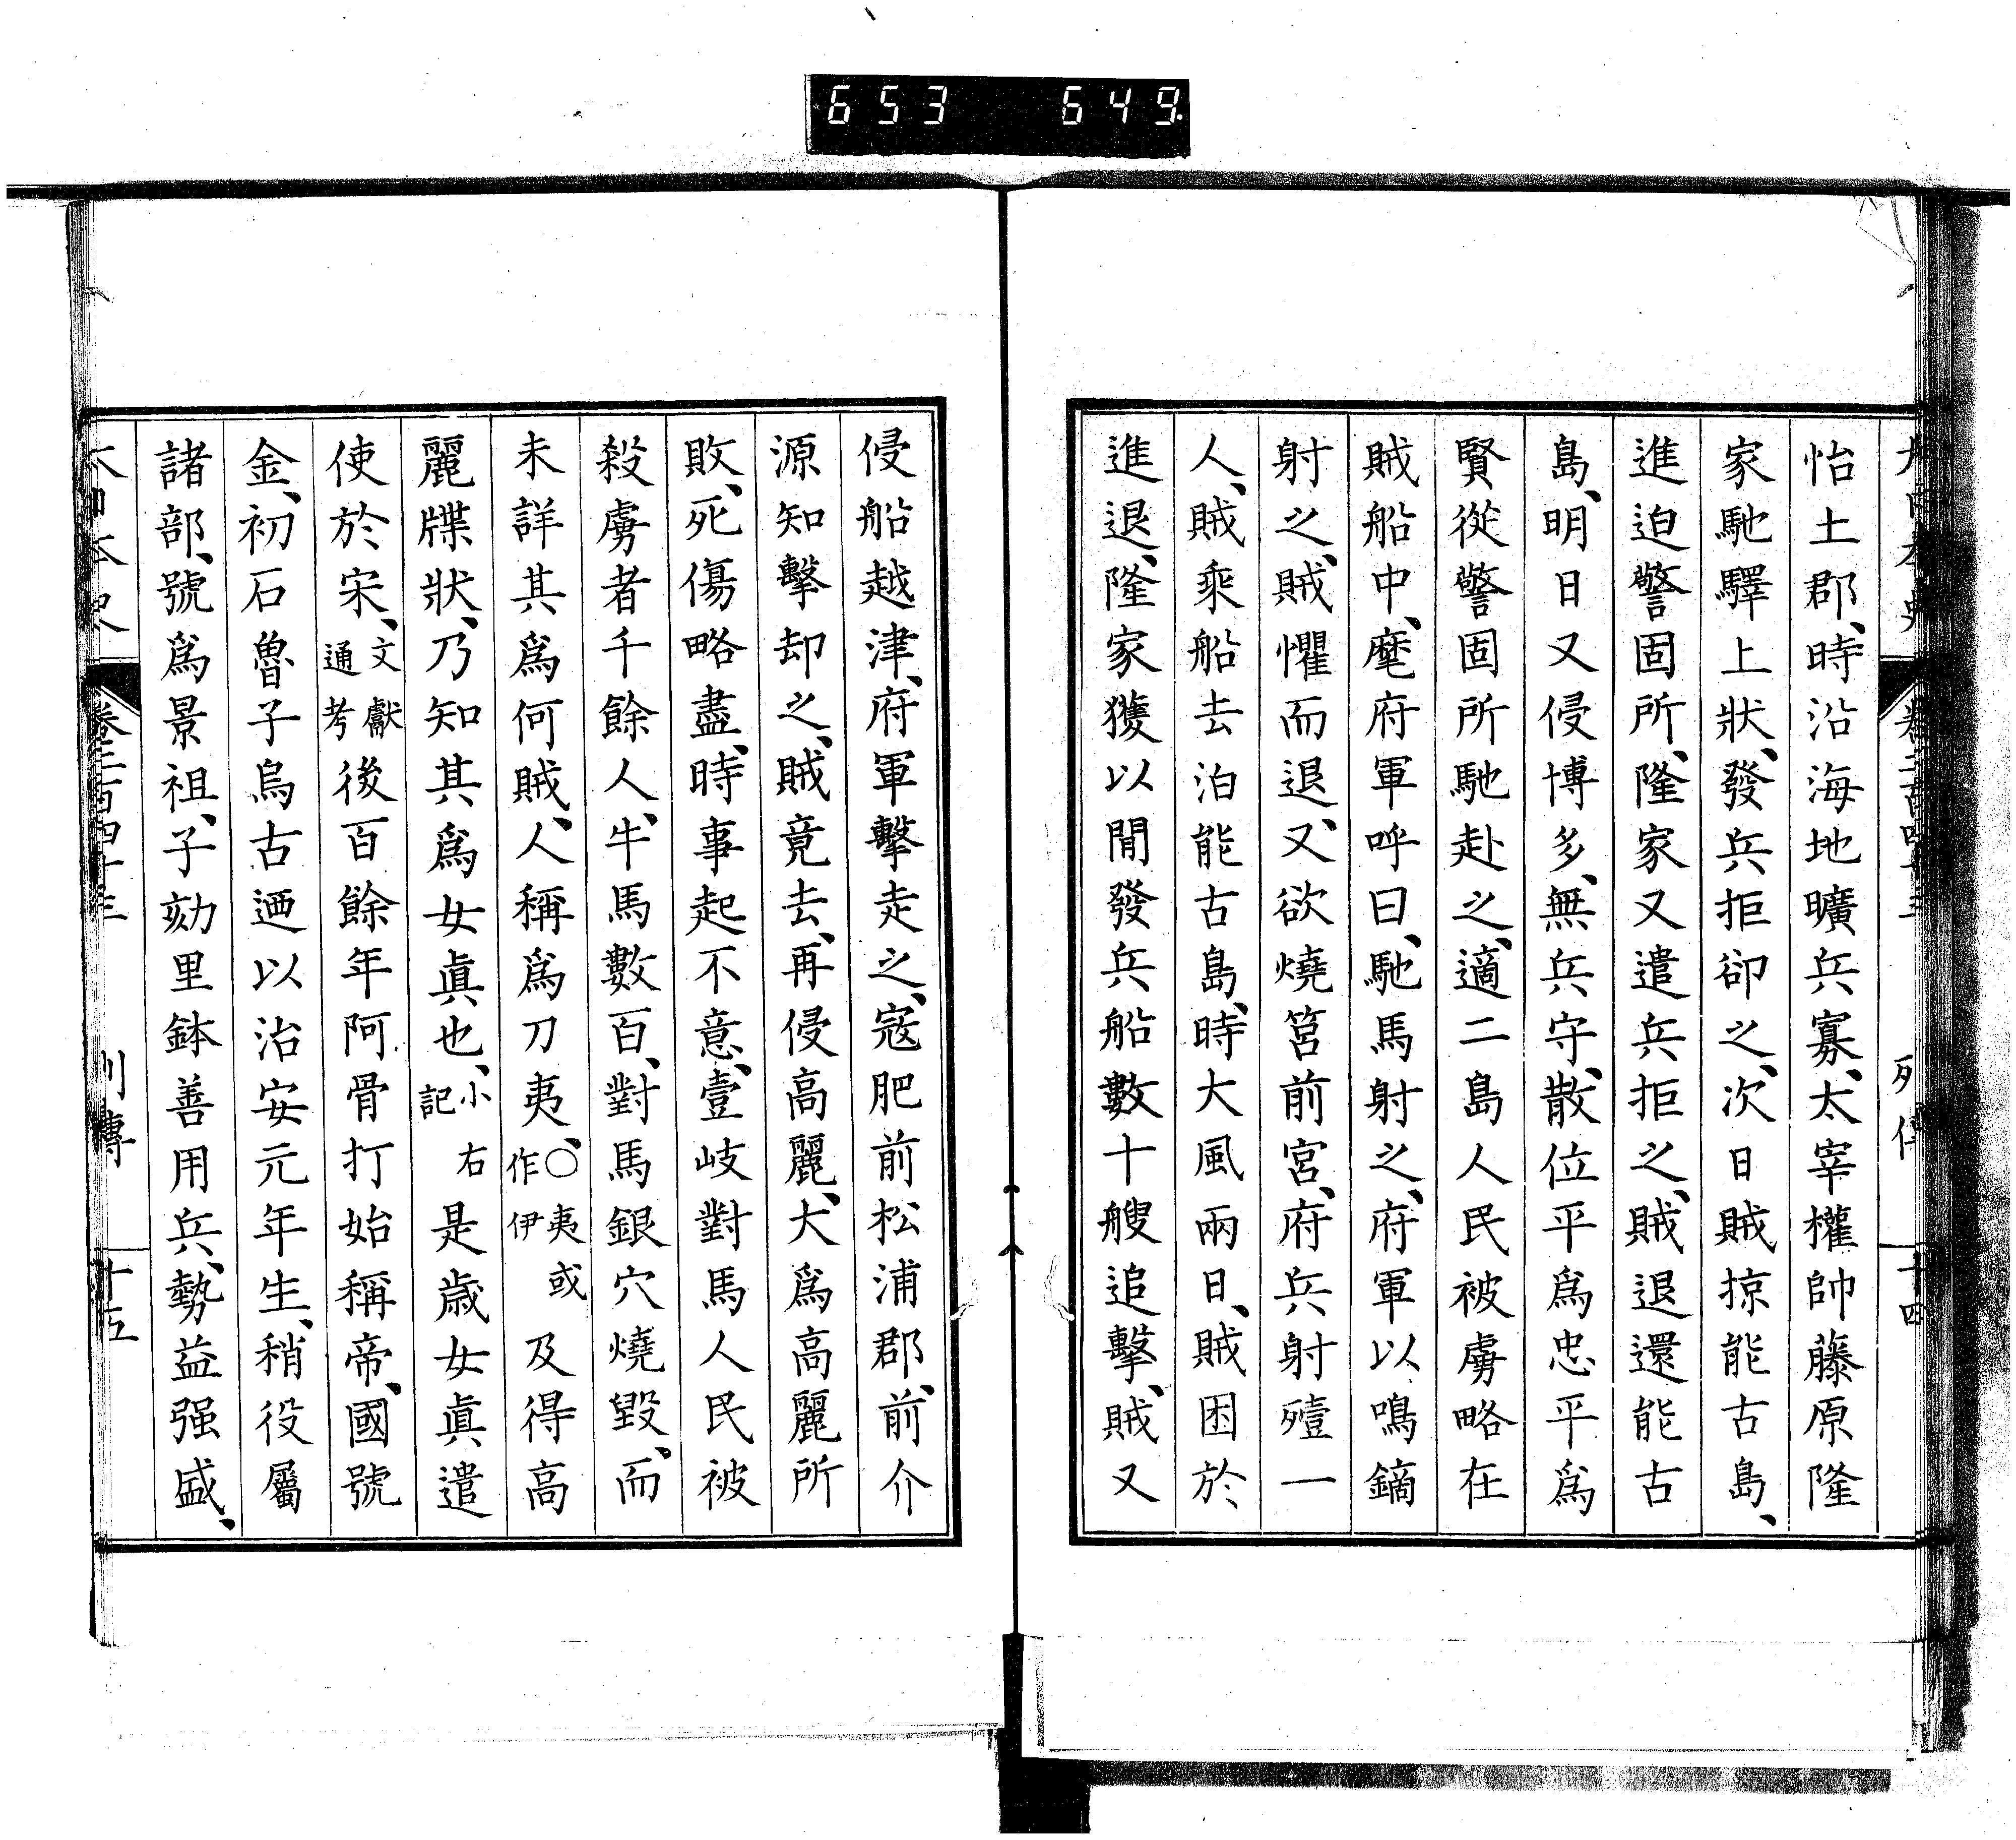 653 649
大日本史 卷二百四十三 列傳 十四
怡土郡、時沿海地曠兵寡、太宰權帥藤原隆
家馳驛上狀、發兵拒卻之、次日賊掠能古島、
進迫警固所、隆家又遣兵拒之、賊退還能古
島、明日又侵博多、無兵守、散位平爲忠平爲
賢從警固所馳赴之、適二島人民被虜略在
賊船中、麾府軍呼曰、馳馬射之、府軍以鳴鏑
射之、賊懼而退、又欲燒筥前宮、府兵射殪一
人、賊乘船去泊能古島、時大風兩日、賊困於
進退、隆家獲以閒發兵船數十艘追擊、賊又
侵船越津、府軍擊走之、寇肥前松浦郡、前介
源知擊却之、賊竟去、再侵高麗、大爲高麗所
敗、死傷略盡、時事起不意、壹岐對馬人民被
殺虜者千餘人、牛馬數百、對馬銀穴燒毀、而
未詳其爲何賊、人稱爲刀夷、〇夷或作伊及得高
麗牒狀、乃知其爲女眞也、小右記是歲女眞遣
使於宋、文獻通考後百餘年阿骨打始稱帝、國號
金、初石魯子烏古迺以治安元年生、稍役屬
諸部、號爲景祖、子劾里鉢善用兵、勢益强盛、
大日本史 卷二百四十三 列傳 十五